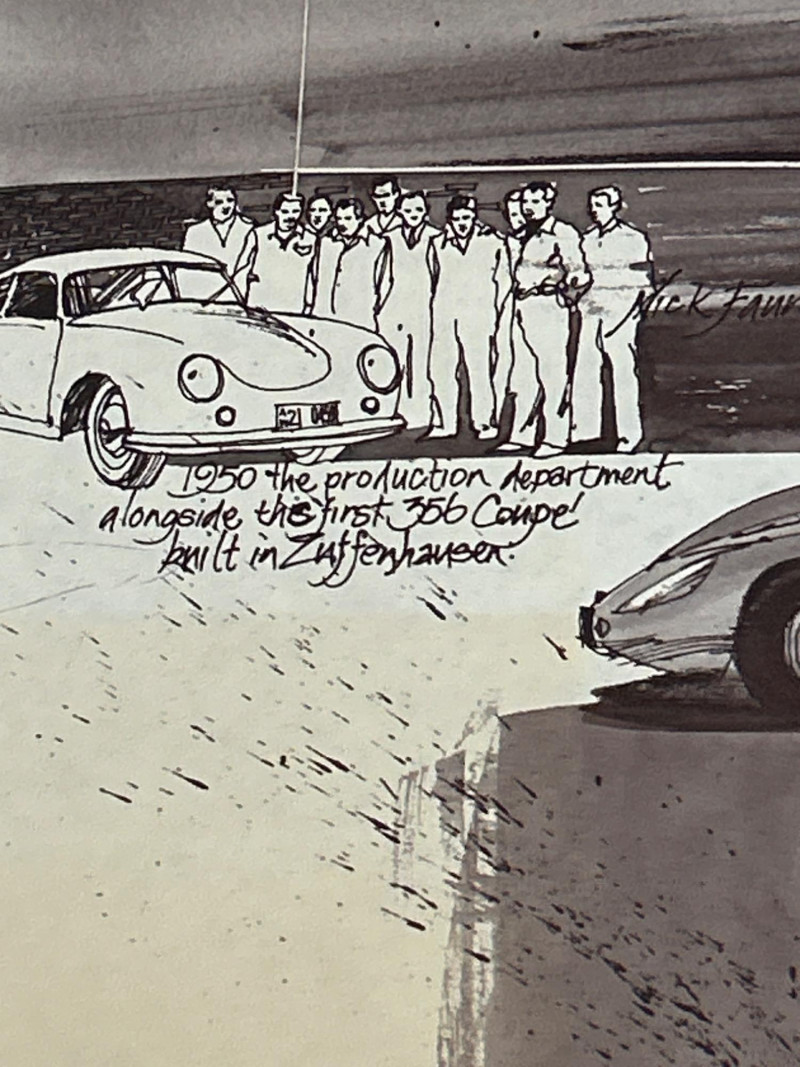 Nick Faur
1950 the production department
alongside the first 356 Coupe'
built in Zuffenhausen.